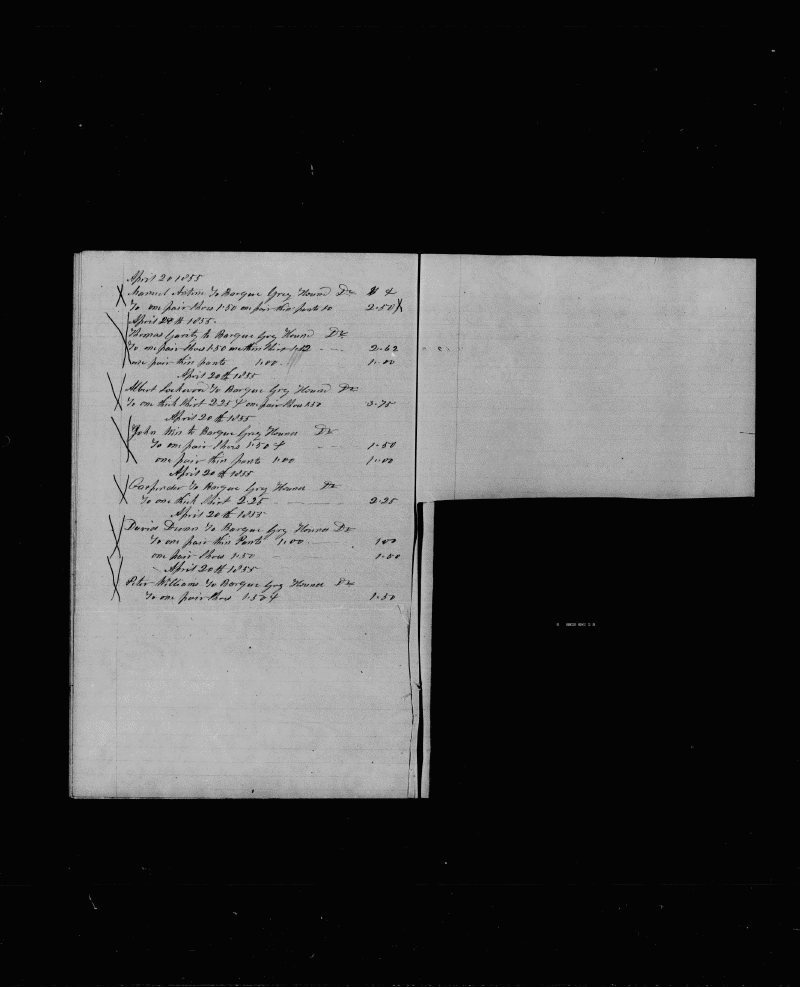 April 20 1855
Manuel Antone To Barque Grey Hound Dr
To one pair Shoes 1.50 one pair thin pants 10 2.50
April 20th 1855
Thomas to Barque Grey Hound Dr
To one pair Shoes 1.50 one thin Shirt 1.12 2.62
one pair thin pants 1.00 1.00
April 20th 1855
Albert Lockwood To Barque Grey Hound Dr
To one thick Shirt 2.25 & one pair Shoes 1.50 3.75
April 20th 1855
John to Barque Grey Hound Dr
To one pair Shoes 1.50 & 1.50
one pair thin pants 1.00 1.00
April 20th 1855
To Barque Grey Hound Dr
To one thick Shirt 2.25 2.25
April 20th 1855
David To Barque Grey Hound Dr
To one pair thin Pants 1.00 1.00
one pair Shoes 1.50 1.50
April 20th 1855
Peter Williams To Barque Grey Hound Dr
To one pair Shoes 1.50 & 1.50